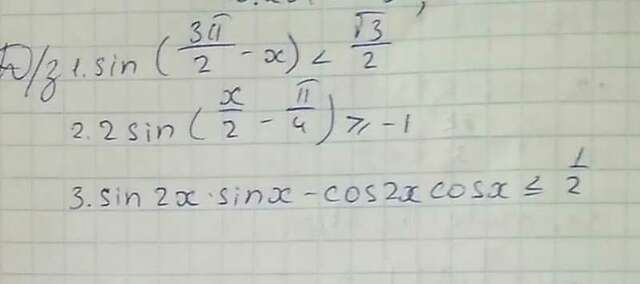 Д/з 1. sin (3π/2 - x) < √3/2
2. 2 sin (x/2 - π/4) ⩾ -1
3. sin 2x · sinx - cos2x cosx ≤ 1/2